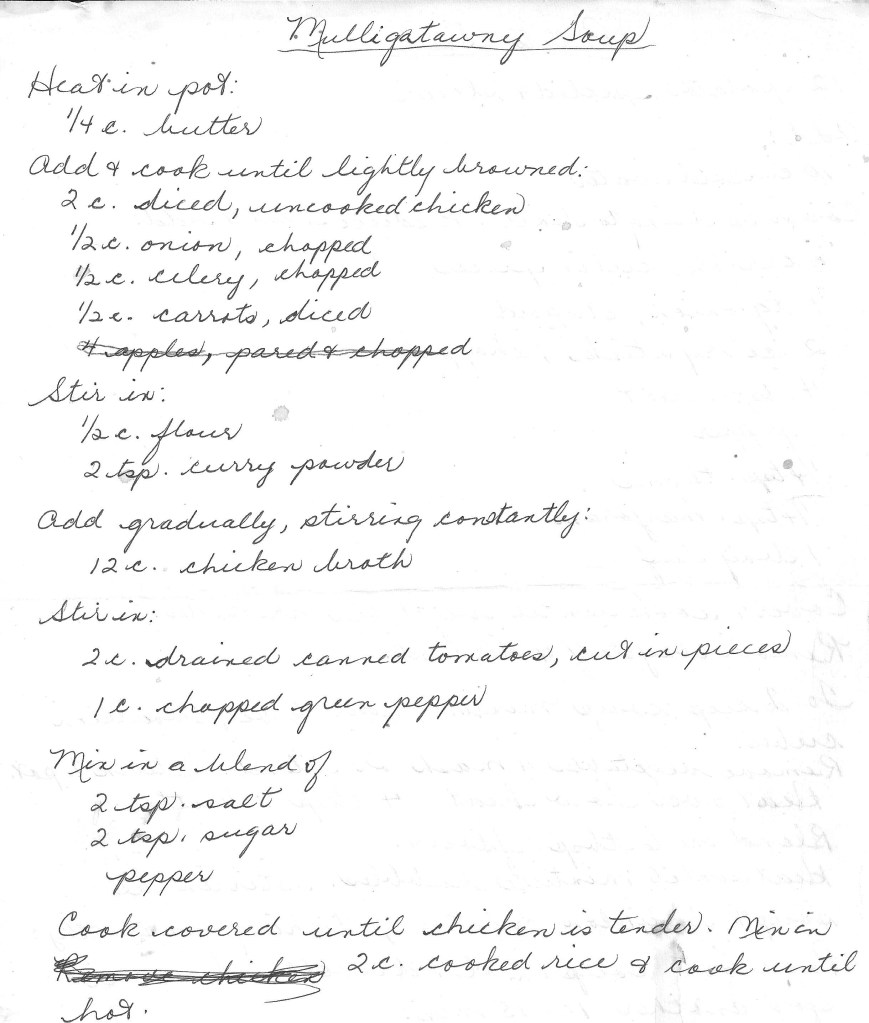 Mulligatawny Soup
Heat in pot:
1/4 c. butter
Add & cook until lightly browned:
2 c. diced, uncooked chicken
1/2 c. onion, chopped
1/2 c. celery, chopped
1/2 c. carrots, diced
4 apples, pared & chopped
Stir in:
1/2 c. flour
2 tsp. curry powder
Add gradually, stirring constantly:
12 c. chicken broth
Stir in:
2 c. drained canned tomatoes, cut in pieces
1 c. chopped green pepper
Mix in a blend of
2 tsp. salt
2 tsp. sugar
pepper
Cook covered until chicken is tender. Mix in
Remove chicken 2 c. cooked rice & cook until
hot.